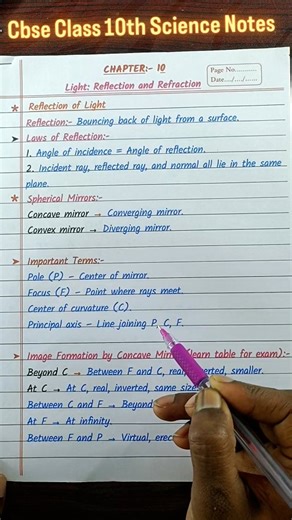 Cbse Class 10th Science Notes
CHAPTER:- 10
Light: Reflection and Refraction
Page No.........
Date..../..../......
* Reflection of Light
Reflection:- Bouncing back of light from a surface.
➤ Laws of Reflection:-
1. Angle of incidence = Angle of reflection.
2. Incident ray, reflected ray, and normal all lie in the same
plane.
* Spherical Mirrors:-
Concave mirror → Converging mirror.
Convex mirror → Diverging mirror.
➤ Important Terms:-
Pole (P) – Center of mirror.
Focus (F) – Point where rays meet.
Center of curvature (C).
Principal axis – Line joining P, C, F.
➤ Image Formation by Concave (learn table for exam):-
Beyond C → Between F and C, real, smaller.
At C → At C, real, inverted, same
Between C and F → Beyond
At F → At infinity.
Between F and P → Virtual,